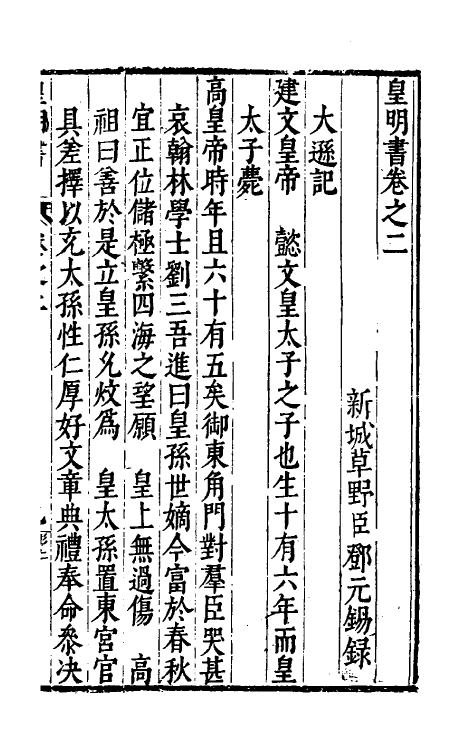 皇明書卷之二
新城草野臣鄧元錫錄
大遜記
建文皇帝 懿文皇太子之子也生十有六年而皇
太子薨
高皇帝時年且六十有五矣御東角門對羣臣哭甚
哀翰林學士劉三吾進曰皇孫世嫡今富於春秋
宜正位儲極繫四海之望願 皇上無過傷 高
祖曰善於是立皇孫允炆爲 皇太孫置東宮官
具差擇以充太孫性仁厚好文章典禮奉命叅决